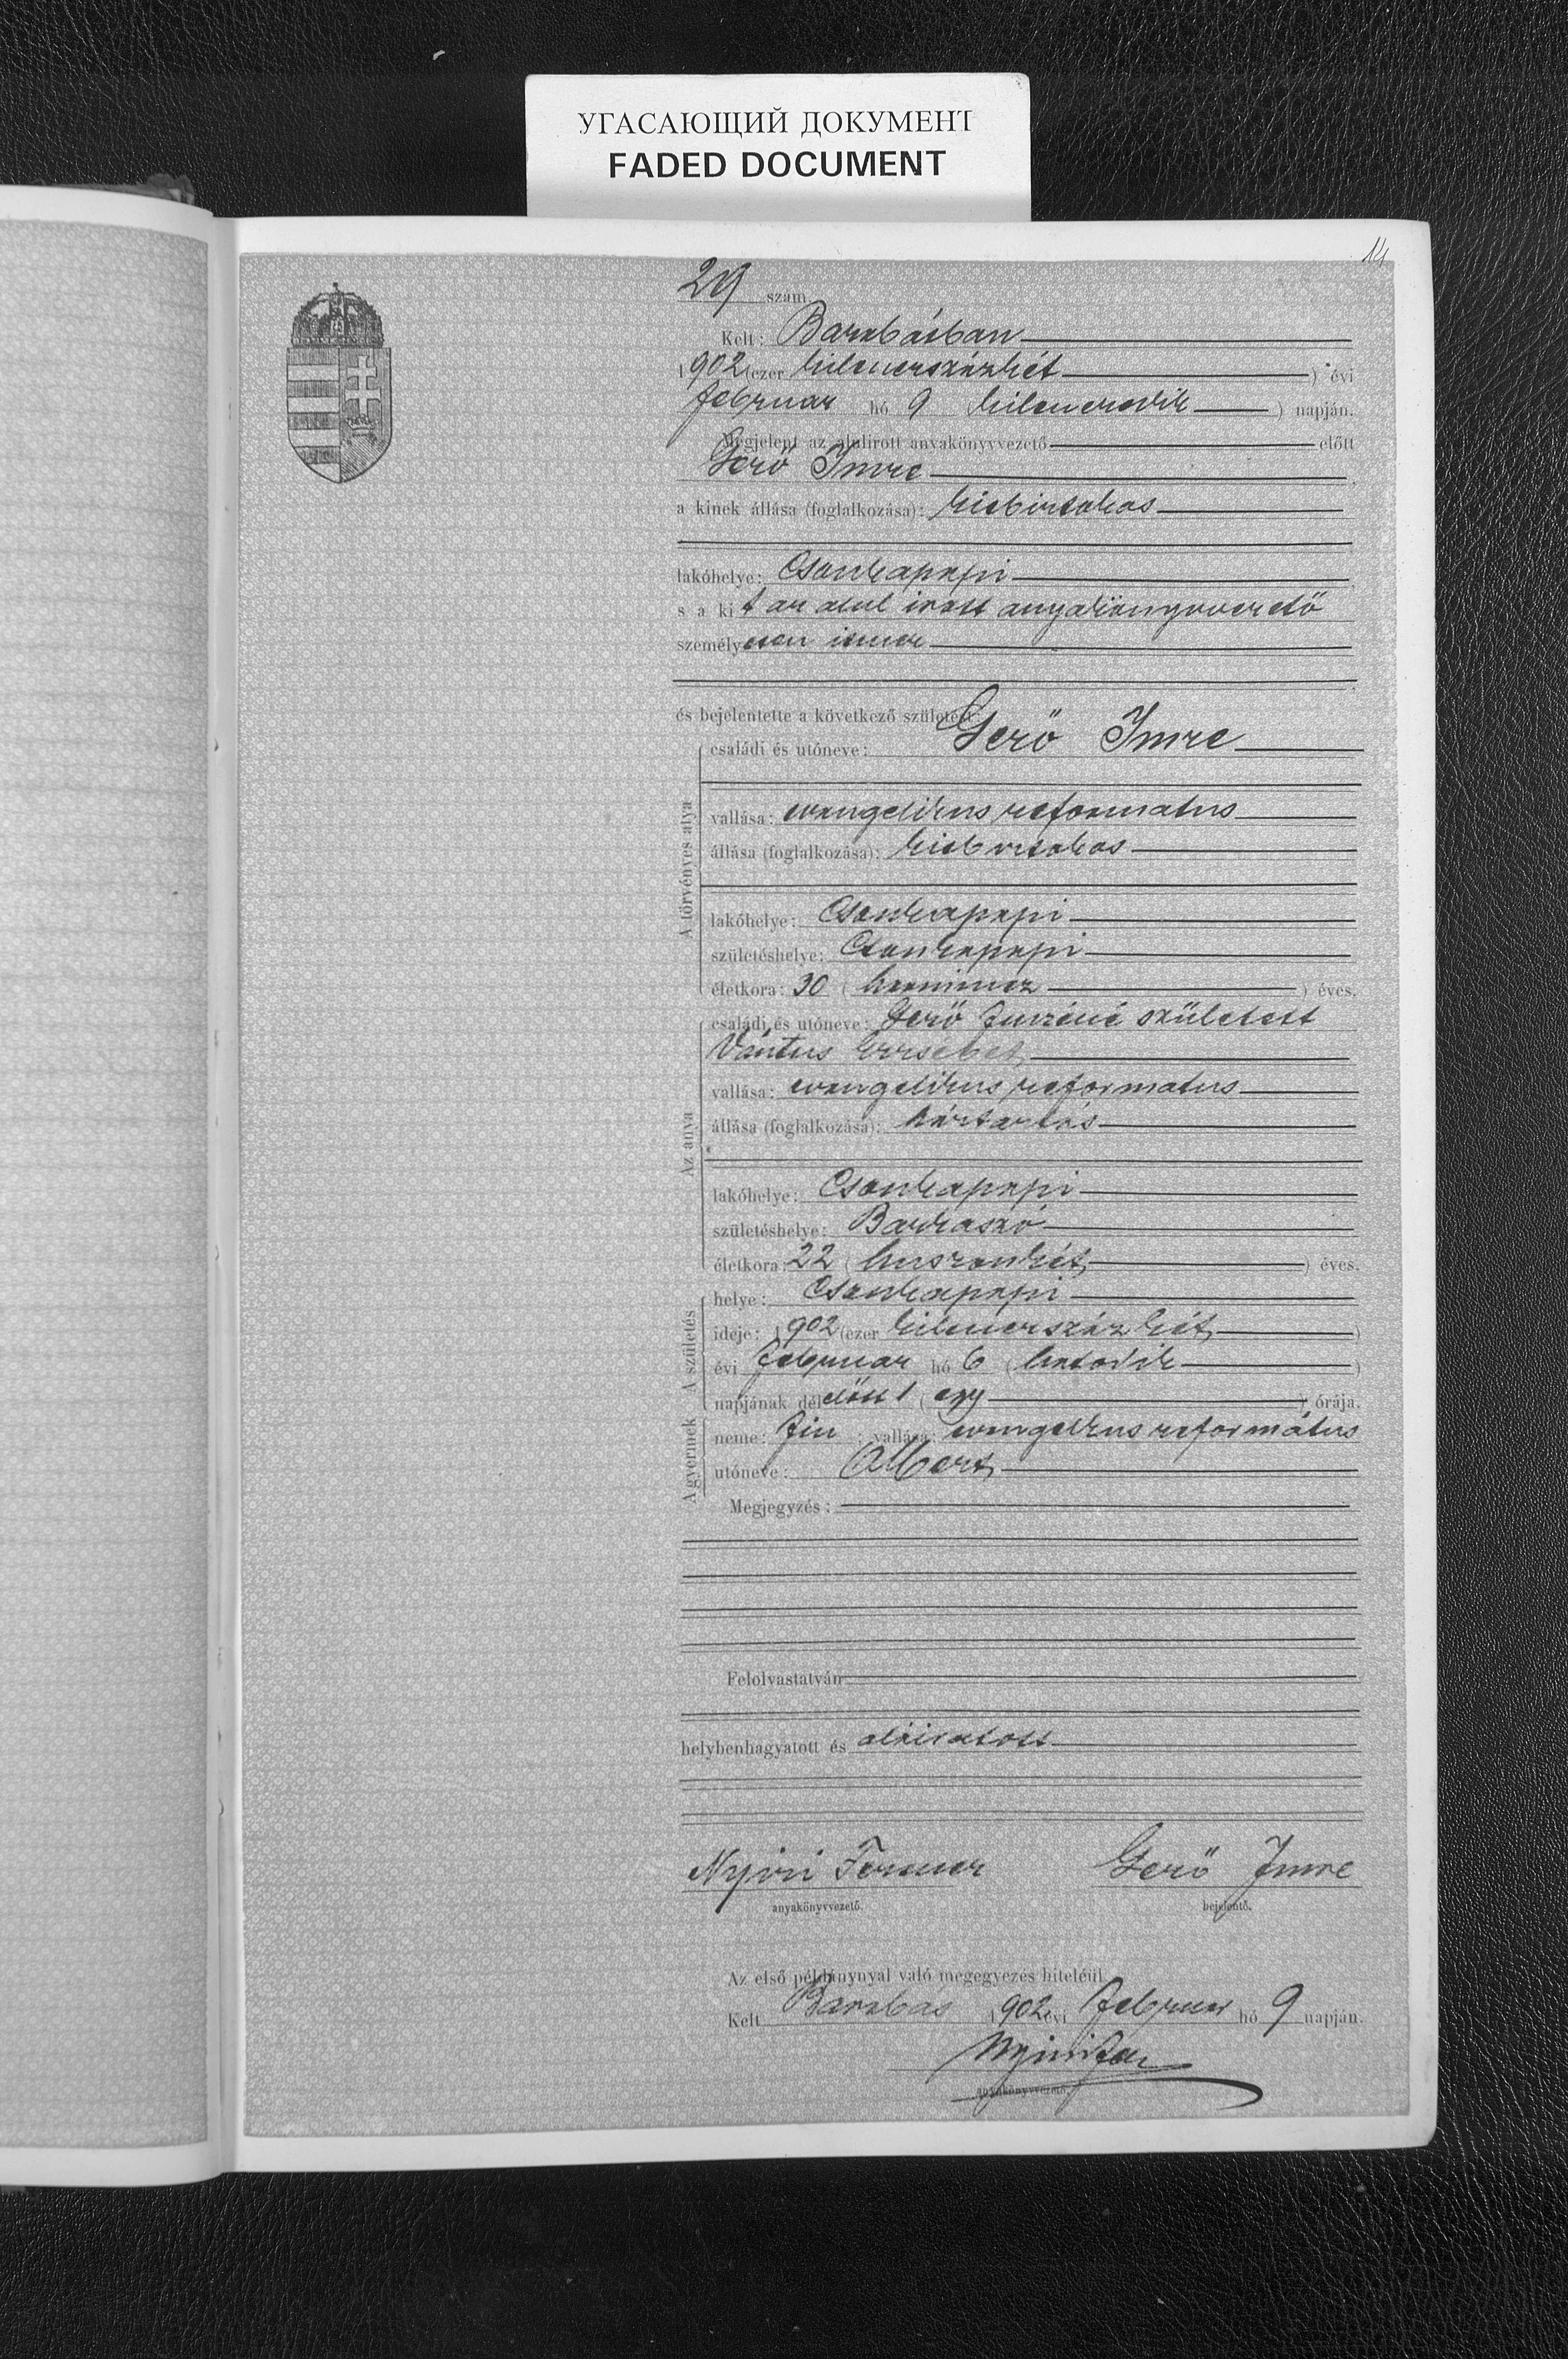 УГАСАЮЩИЙ ДОКУМЕНТ
FADED DOCUMENT
14
29 szám.
Kelt: Barabásban
1902 (ezer kilenczszázkét) évi
február hó 9 kilenczedik) napján.
Megjelent az alulirott anyakönyvvezető előtt
Gerő Imre
a kinek állása (foglalkozása): kisbirtokos
lakóhelye: Csonkapapi
s a kit az alul irott anyakönyvvezető
személyesen ismer
és bejelentette a következő születést:
A törvényes atya
családi és utóneve: Gerő Imre
vallása: evangelikus reformatus
állása (foglalkozása): kisbirtokos
lakóhelye: Csonkapapi
születéshelye: Csonkapapi
életkora: 30 (harmincz) éves.
Az anya
családi és utóneve: Gerő Imréné született
Vántus Erzsébet
vallása: evangelikus reformatus
állása (foglalkozása): háztartás
lakóhelye: Csonkapapi
születéshelye: Barkaszó
életkora: 22 (huszonkét) éves.
A születés
helye: Csonkapapi
ideje: 1902 (ezer kilenczszáz két)
évi február hó 6 (hatodik)
napjának délelőtt 1 (egy) órája.
A gyermek
neme: fiu; vallása: evangelikus református
utóneve: Albert
Megjegyzés:
Felolvastatván
helybenhagyatott és aláiratott
Nyiri Ferencz Gerő Imre
anyakönyvvezető. bejelentő.
Az első példánynyal való megegyezés hiteléül
Kelt Barabás 1902 évi február hó 9 napján.
anyakönyvvezető.